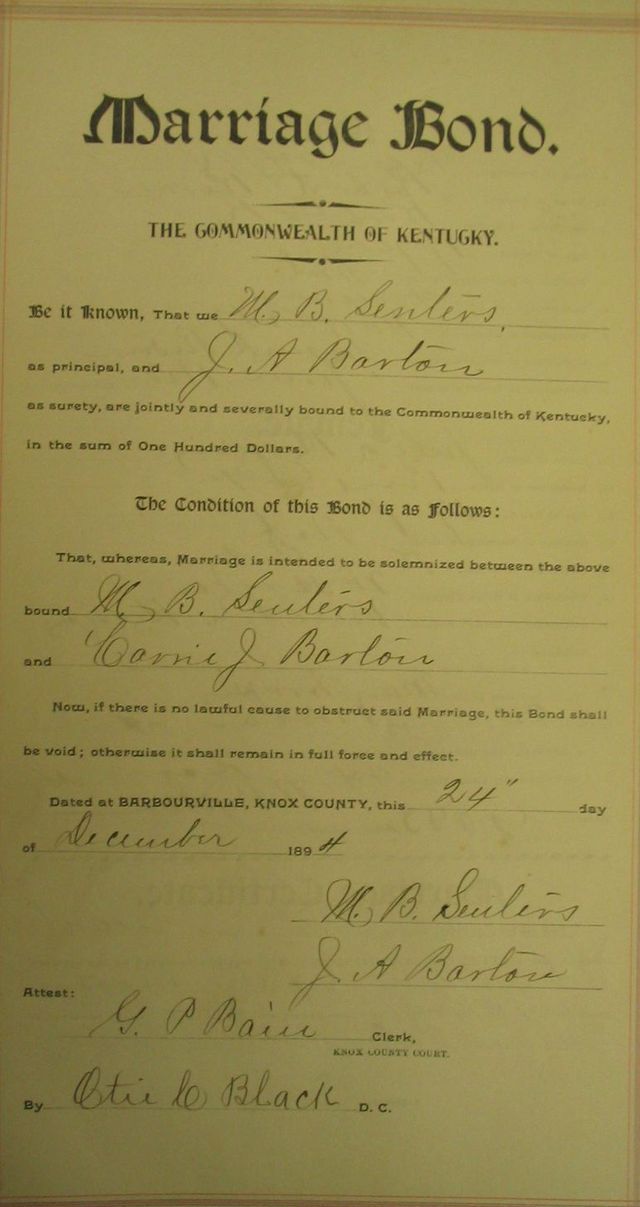 Marriage Bond.
THE COMMONWEALTH OF KENTUCKY.
Be it Known, That we M. B. Senters,
as principal, and J. A Barton
as surety, are jointly and severally bound to the Commonwealth of Kentucky,
in the sum of One Hundred Dollars.
The Condition of this Bond is as Follows:
That, whereas, Marriage is intended to be solemnized between the above
bound M. B. Senters
and Carrie J Barton
Now, if there is no lawful cause to obstruct said Marriage, this Bond shall
be void; otherwise it shall remain in full force and effect.
Dated at BARBOURVILLE, KNOX COUNTY, this 24" day
of December 1894
M. B. Senters
J. A Barton
Attest:
G. P Bain Clerk,
KNOX COUNTY COURT.
By Black D. C.